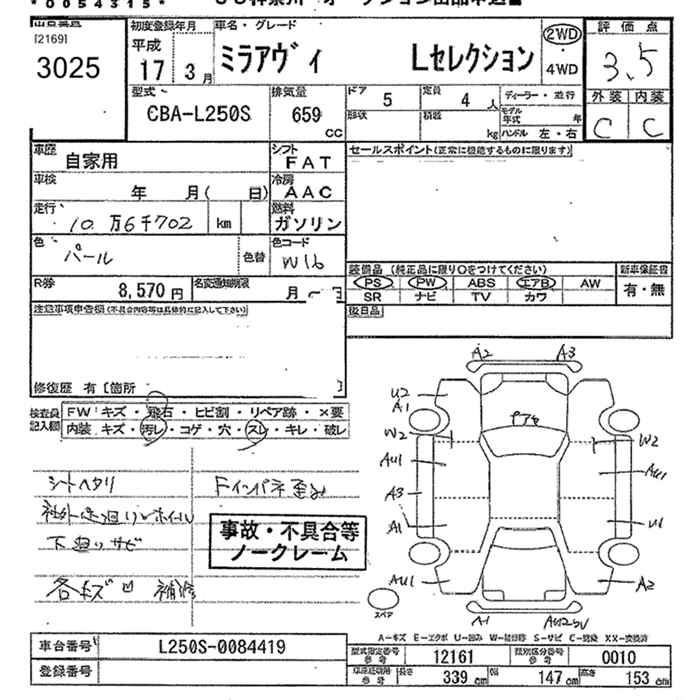 *0054315*
[2169]
3025
初度登録年月
平成
17年 3月
車名・グレード
ミラアヴィ Lセレクション
2WD
4WD
評価点
3.5
外装 内装
C C
型式
CBA-L250S
排気量
659
CC
ドア
5
定員
4人
ディーラー・並行
形状
積載
kg
モデル年式
年
ハンドル 左・右
車歴
自家用
シフト
FAT
車検
年 月( 日)
冷房
AAC
走行
10万6千702 km
燃料
ガソリン
色
パール
色替
色コード
W16
セールスポイント(正常に機能するものに限ります)
R券
8,570円
名変通知期限
月 日
装備品 (純正品に限り○をつけてください)
PS PW ABS エアB AW
SR ナビ TV カワ
新車保証書
有・無
後日品
注意事項申告欄(不具合内容等は具体的に記入して下さい)
修復歴 有 [箇所 ]
検査員記入欄
FW キズ・飛石・ヒビ割・リペア跡・×要
内装 キズ・汚レ・コゲ・穴・スレ・キレ・破レ
シートヘタリ
Fインパネ歪み
下廻りサビ
各キズ凹 補修
事故・不具合等
ノークレーム
A2 A3
U2
A1
W2 W2
AU1 AU1
A3
A1 U1
AU1 A2
A1
スペア
A-キズ E-エクボ U-凹み W-補修跡 S-サビ C-腐蝕 XX-交換済
車台番号
L250S-0084419
登録番号
型式指定番号
参考
12161
類別区分番号
参考
0010
長さ
339cm
幅
147cm
高さ
153cm